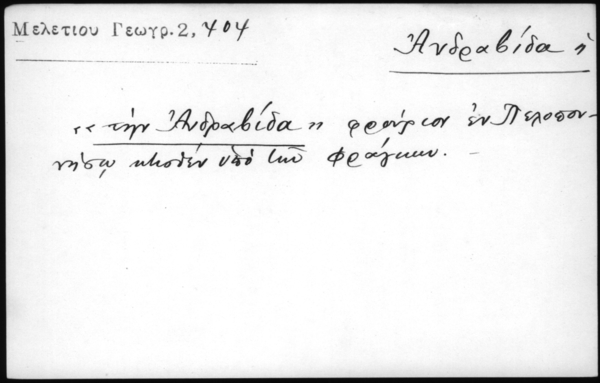 Μελετίου Γεωγρ. 2, 404
Ἀνδραβίδα ἡ
«τὴν Ἀνδραβίδα» φρούριον ἐν Πελοπον-
νήσῳ κτισθὲν ὑπὸ τῶν Φράγκων. —